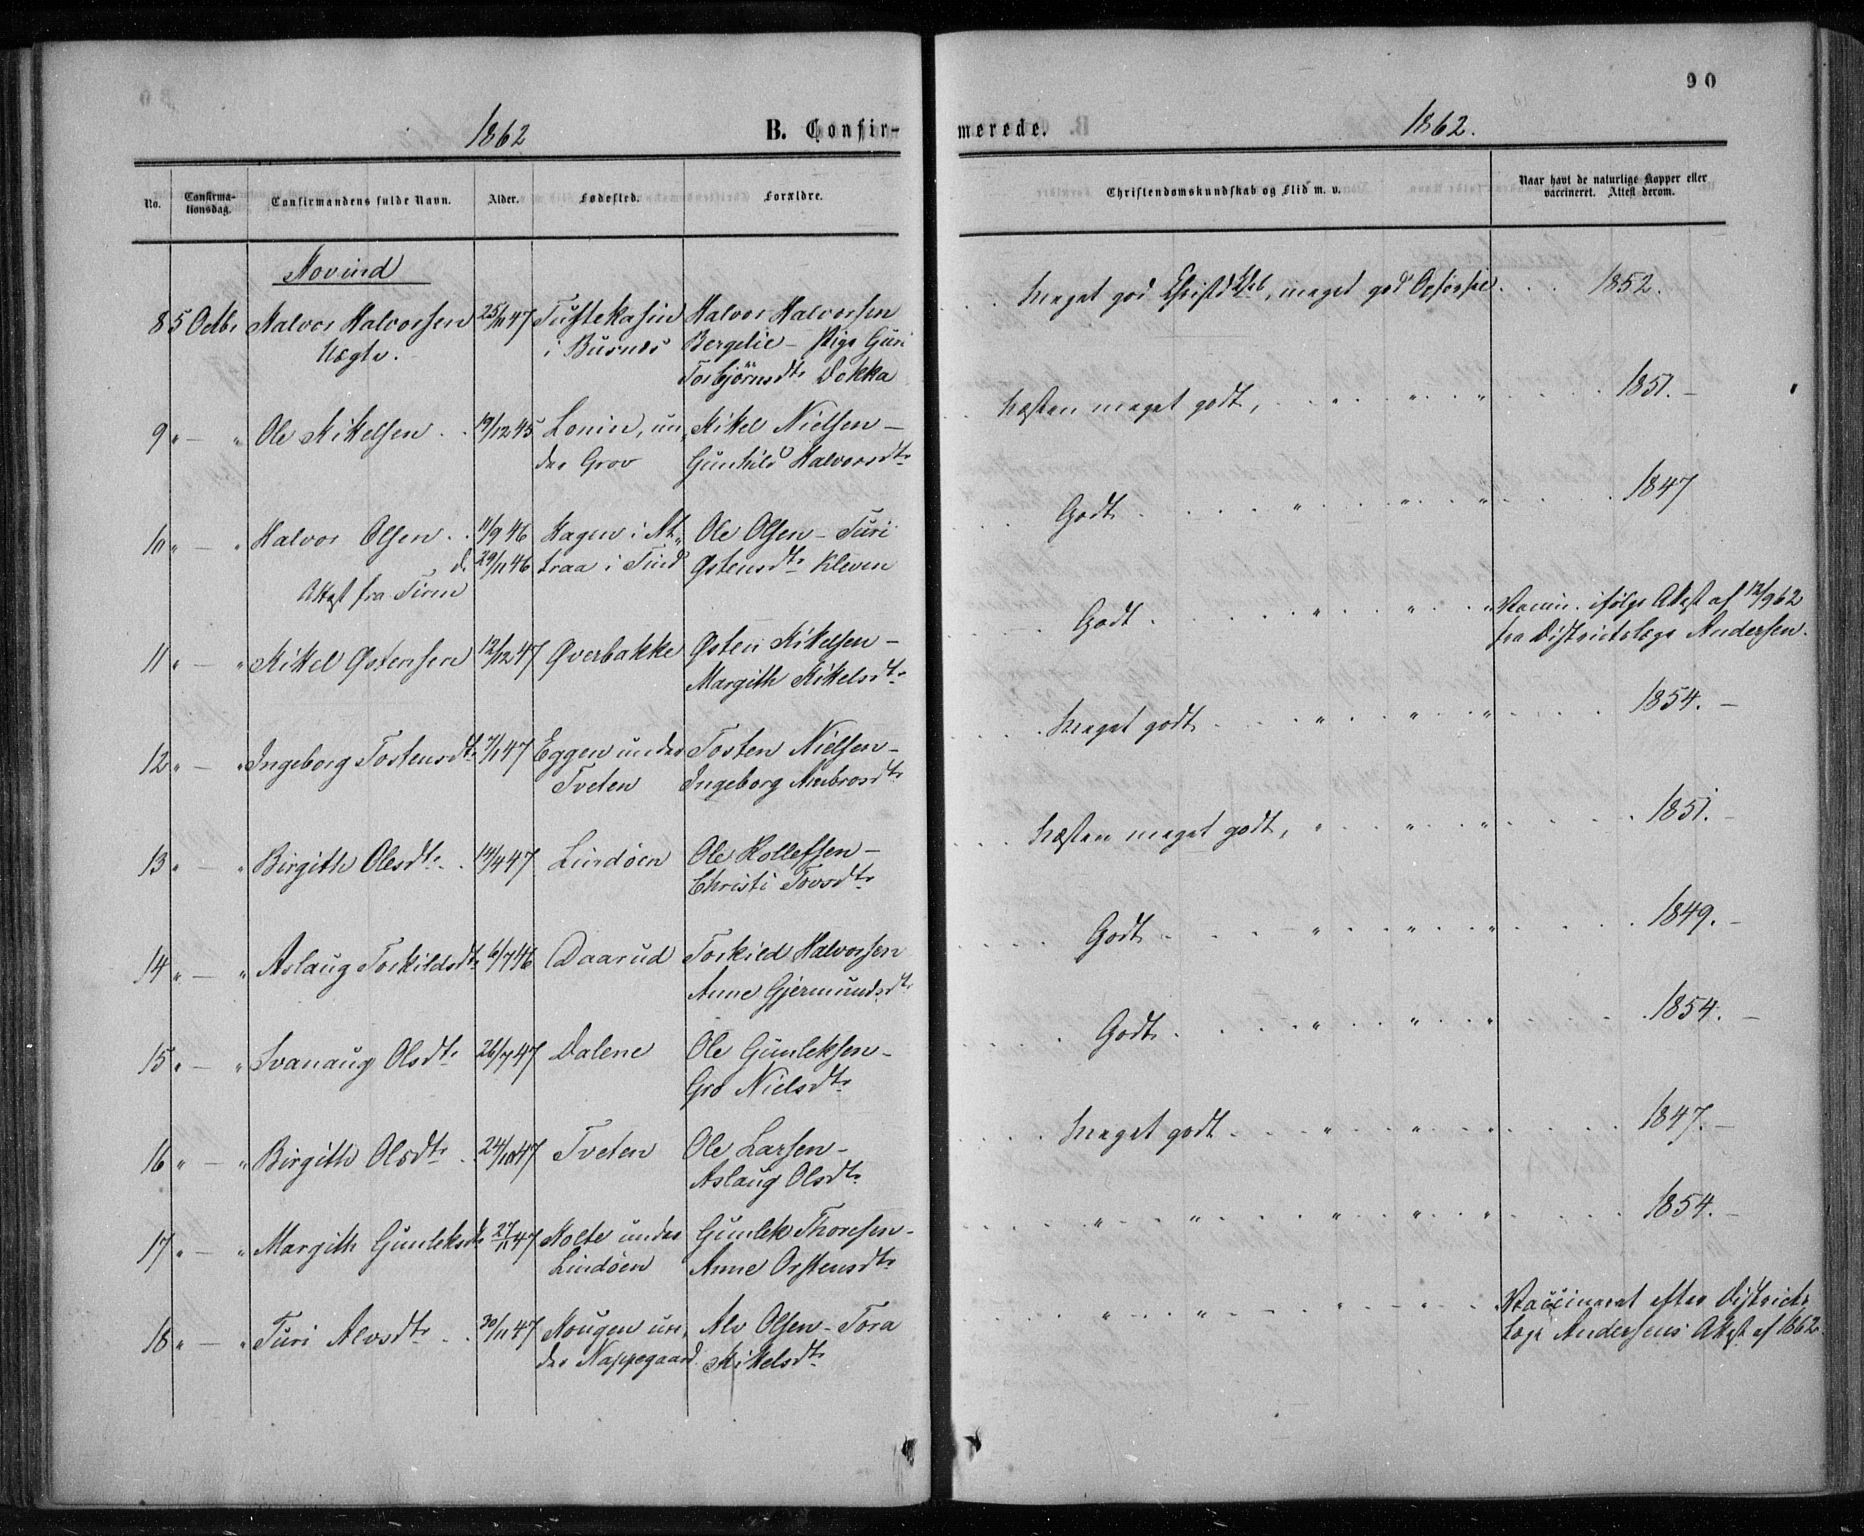 90
1862
B. Confir-
merede.
1862.
No.
Confirma-
tionsdag.
Confirmandens fulde Navn.
Alder.
Fødested.
Forældre.
Christendomskundskab og Flid m. v.
Naar havt de naturlige Kopper eller
vaccineret. Attest derom.
Hovind
8 5 Octbr Halvor Halvorsen 25/11 47 Halvor Halvorsen
Uægte. i Busnæs Bergelie - Pige Guri
Torbjørnsdtr Dokka
Meget god Christdksb, meget god Opførsel. 1852.
9 " - " Ole Mikelsen 19/12 45 Lonin, un- Mikel Nielsen -
der Grov Gunhild Halvorsdtr
Næsten meget godt, " " " 1851. -
10 " - " Halvor Olsen 11/9 46 Hagen i At- Ole Olsen - Turi
d. 29/11 46 traa i Tind Østensdtr Kleven
Attest fra Tinn
Godt " " " 1847
11 " - " Mikel Østensen 12/12 47 Øverbakke Østen Mikelsen -
Margith Mikelsdtr
Godt " " " Vaccin. ifølge Attest af 12/9 62
fra Districtslæge Andersen.
12 " - " Ingeborg Tostensdtr 7/1 47 Eggen under Tosten Nielsen -
Tveten Ingeborg Ambrosdtr
Meget godt " " " 1854. -
13 " - " Birgith Olesdtr 14/4 47 Lindøen Ole Rollefsen -
Christi Tovsdtr
Næsten meget godt, " " " 1851. -
14 " - " Aslaug Torkildsdtr 6/7 46 Daarud Torkild Halvorsen
Anne Gjermundsdtr
Godt " " " 1849. -
15 " - " Svanaug Olsdtr 26/7 47 Dalene Ole Gunleksen -
Gro Nielsdtr
Godt " " " 1854. -
16 " - " Birgith Olsdtr 24/10 47 Tveten Ole Larsen -
Aslaug Olsdtr
Meget godt " " " 1847. -
17 " - " Margith Gunleksdtr 27/11 47 Holte under Gunlek Thoresen -
Lindøen Anne Østensdtr
" " " " " 1854. -
18 " - " Turi Alvsdtr 30/11 47 Haugen un- Alv Olsen - Tora
der Nappegaard Mikelsdtr
" " " " " Vaccineret efter Districts-
læge Andersens Attest af 1862.